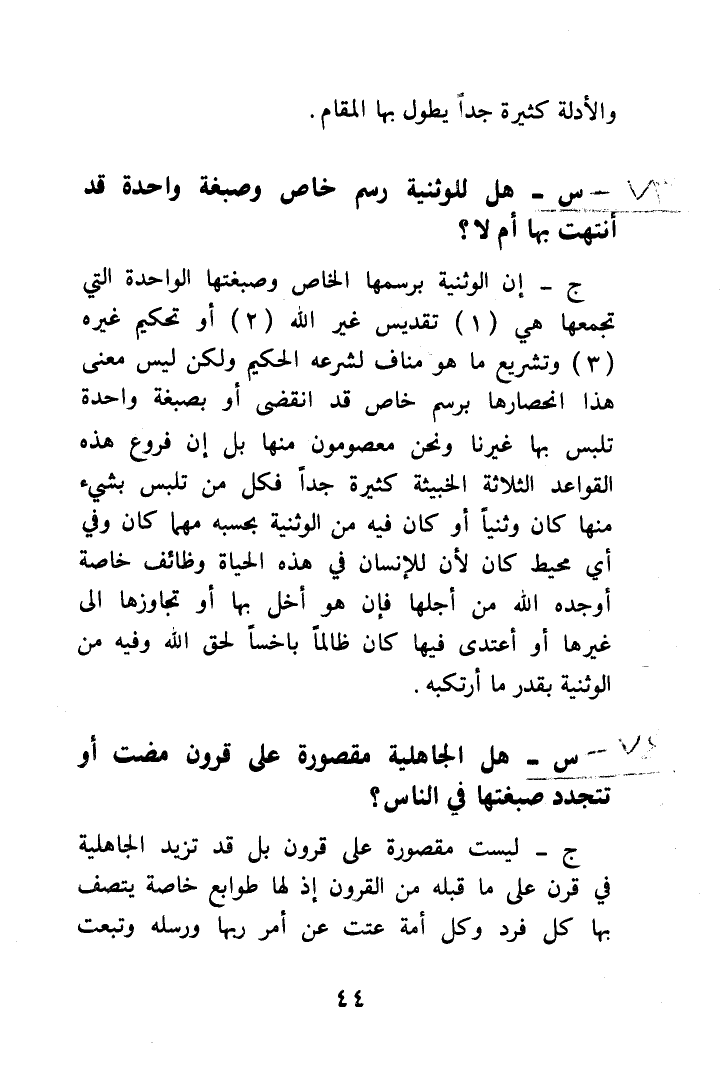 والأدلة كثيرة جداً يطول بها المقام .
٧٣ - س - هل للوثنية رسم خاص وصبغة واحدة قد
أنتهت بها أم لا ؟
ج - إن الوثنية برسمها الخاص وصبغتها الواحدة التي
تجمعها هي ( ١ ) تقديس غير الله ( ٢ ) أو تحكيم غيره
( ٣ ) وتشريع ما هو مناف لشرعه الحكيم ولكن ليس معنى
هذا انحصارها برسم خاص قد انقضى أو بصبغة واحدة
تلبس بها غيرنا ونحن معصومون منها بل إن فروع هذه
القواعد الثلاثة الخبيثة كثيرة جداً فكل من تلبس بشيء
منها كان وثنياً أو كان فيه من الوثنية بحسبه مهما كان وفي
أي محيط كان لأن للإنسان في هذه الحياة وظائف خاصة
أوجده الله من أجلها فإن هو أخل بها أو تجاوزها الى
غيرها أو أعتدى فيها كان ظالماً باخساً لحق الله وفيه من
الوثنية بقدر ما أرتكبه .
٧٤ - س - هل الجاهلية مقصورة على قرون مضت أو
تتجدد صبغتها في الناس ؟
ج - ليست مقصورة على قرون بل قد تزيد الجاهلية
في قرن على ما قبله من القرون إذ لها طوابع خاصة يتصف
بها كل فرد وكل أمة عتت عن أمر ربها ورسله وتبعت
٤٤